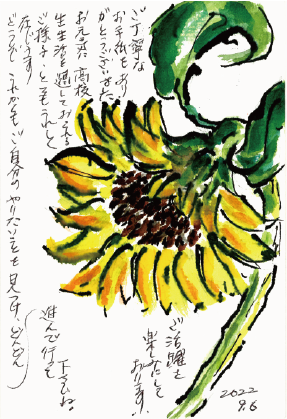 ご丁寧な
お手紙をあり
がとうございました
お元気に高校
生生活を過しておられる
ご様子、とてもうれしく
存じます
どうかこれからもご自分のやりたいことを見つけ、どんどん
進んで行って
下さいね。
ご活躍を
楽しみにして
おります！
2022
9.6